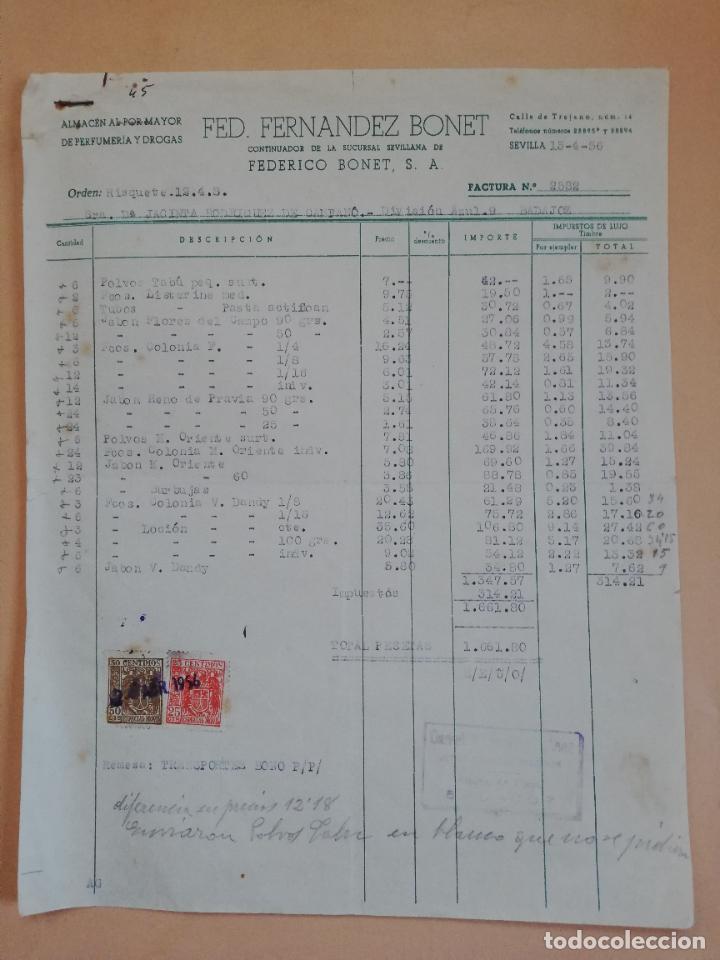 45
ALMACÉN AL POR MAYOR
DE PERFUMERÍA Y DROGAS
FED. FERNANDEZ BONET
CONTINUADOR DE LA SUCURSAL SEVILLANA DE
FEDERICO BONET, S. A.
Calle de Trajano, núm. 14
Teléfonos números 28895* y 28894
SEVILLA 13-4-56
Orden: Risquete.12.4.S.
FACTURA N.º 2582
Sra. Dª JACINTA RODRIGUEZ DE CAMPANO.- División Azul.9 BADAJOZ
Cantidad DESCRIPCIÓN Precio º/o descuento IMPORTE IMPUESTOS DE LUJO
Timbre
Por ejemplar TOTAL
6 Polvos Tabú peq. surt. 7.-- 42.-- 1.65 9.90
2 Fcos. Listerine med. 9.75 19.50 1.-- 2.--
6 Tubos - Pasta actifoam 5.12 30.72 0.67 4.02
6 Jabon Flores del Campo 90 grs. 4.51 27.06 0.99 5.94
12 - - - - 50 - 2.57 30.84 0.57 6.84
3 Fcos. Colonia F. - 1/4 16.24 48.72 4.58 13.74
6 - - - - 1/8 9.63 57.78 2.65 15.90
12 - - - - 1/16 6.01 72.12 1.61 19.32
14 - - - - indv. 3.01 42.14 0.81 11.34
12 Jabon Heno de Pravia 90 grs. 5.15 61.80 1.13 13.56
24 - - - - 50 - 2.74 65.76 0.60 14.40
24 - - - - 25 - 1.61 38.64 0.35 8.40
6 Polvos M. Oriente surt. 7.81 46.86 1.84 11.04
24 Fcos. Colonia M. Oriente indv. 7.08 169.92 1.66 39.84
12 Jabon M. Oriente 5.80 69.60 1.27 15.24
23 - - - 60 3.86 88.78 0.85 19.55
6 - Burbujas 3.58 21.48 0.23 1.38
3 Fcos. Colonia V. Dandy 1/8 20.43 61.29 5.20 15.60 34
6 - - - - 1/16 12.62 75.72 2.86 17.16 20
3 - Loción - - cte. 35.60 106.80 9.14 27.42 60
4 - - - - 100 grs. 20.28 81.12 5.17 20.68
6 - - - - indv. 9.02 54.12 2.22 13.32 15
6 Jabon V. Dandy 5.80 34.80 1.27 7.62 9
1.347.57 314.21
Impuestos 314.21
1.661.80
TOTAL PESETAS 1.661.80
E/S/O/
50 CENTIMOS
25 CENTIMOS
50
CTS ESPECIAL MOVIL
25
CTS ESPECIAL MOVIL
2 ABR 1956
Remesa: TRANSPORTES BONO P/P/
diferencia en precios 12'18
Enviaron Polvos Tabu en blanco que no se pidieron
AG
todocoleccion.net